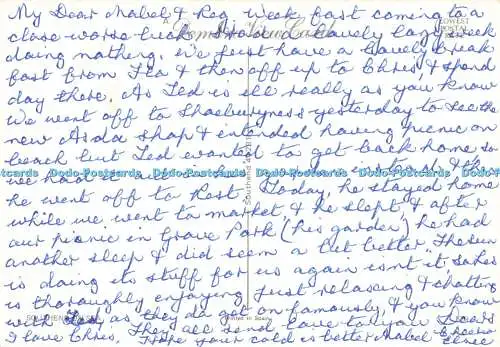 My Dear Mabel & Reg Week fast coming to a
close worse luck. Had a lovely lazy week
doing nothing. We just have a lovely break
fast from Tea & then off up to Chris & spend
day there. As Ted is ill really as you know
we went off to Shoeburyness yesterday to see the
new Asda shop & intended having picnic on
beach but Ted wanted to get back home so
we had it in
he went off to Rest. Today, he stayed home
while we went to market & he slept & after
our picnic in Grove Park (his garden) he had
another sleep & did seem a bit better. The sun
is doing its stuff for us again isn't it. Les
is thoroughly enjoying just relaxing & chatting
with Ted as they do get on famously, & you know
I love Chris. They all send love to you Dears
Hope your cold is better Mabel Cheerio
Elsie
LOWEST
POSTAL
Southend on Sea
Printed in Spain
Dodo-Postcards Dodo-Postcards Dodo-Postcards Dodo-Postcards Dodo-Postcards